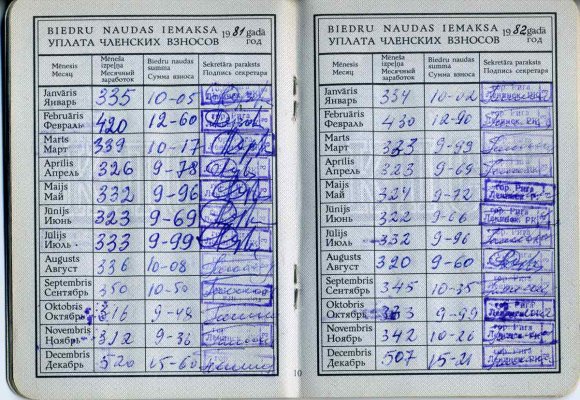 BIEDRU NAUDAS IEMAKSA 1981 gadā
УПЛАТА ЧЛЕНСКИХ ВЗНОСОВ год
Mēnesis Mēneša izpeļņa Biedru naudas summa Sekretāra paraksts
Месяц Месячный заработок Сумма взноса Подпись секретаря
Janvāris Январь 335 10-05
Februāris Февраль 420 12-60
Marts Март 339 10-17
Aprīlis Апрель 326 9-78
Maijs Май 332 9-96
Jūnijs Июнь 323 9-69
Jūlijs Июль 333 9-99
Augusts Август 336 10-08
Septembris Сентябрь 350 10-50
Oktobris Октябрь 316 9-48
Novembris Ноябрь 312 9-36
Decembris Декабрь 520 15-60
10
BIEDRU NAUDAS IEMAKSA 1982 gadā
УПЛАТА ЧЛЕНСКИХ ВЗНОСОВ год
Mēnesis Mēneša izpeļņa Biedru naudas summa Sekretāra paraksts
Месяц Месячный заработок Сумма взноса Подпись секретаря
Janvāris Январь 334 10-02 гор. Рига
Februāris Февраль 430 12-90 гор. Рига
Marts Март 333 9-99
Aprīlis Апрель 323 9-69
Maijs Май 324 9-72 гор. Рига
Jūnijs Июнь 322 9-66 гор. Рига
Jūlijs Июль 332 9-96
Augusts Август 320 9-60
Septembris Сентябрь 345 10-35
Oktobris Октябрь 333 9-99 гор. Рига
Novembris Ноябрь 342 10-26
Decembris Декабрь 507 15-21 гор. Рига